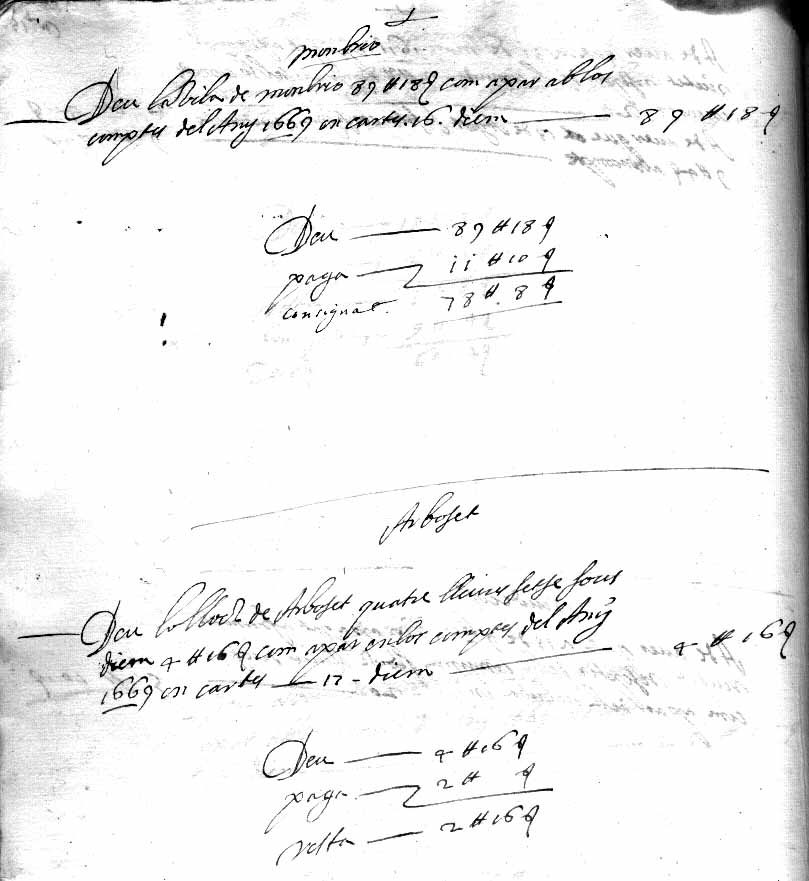 monbrio
Deu la Vila de monbrio 89 ₶ 18 ß com apar ab los
comptes del Any 1669 en cartes 16. diem 89 ₶ 18 ß
Deu 89 ₶ 18 ß
paga 11 ₶ 10 ß
consignat. 78 ₶ 8 ß
Arboset
Deu lo lloch de Arboset quatre lliures setse sous
diem 4 ₶ 16 ß com apar en los comptes del Any
1669 en cartes 17 - diem 4 ₶ 16 ß
Deu 4 ₶ 16 ß
paga 2 ₶ ß
resta 2 ₶ 16 ß